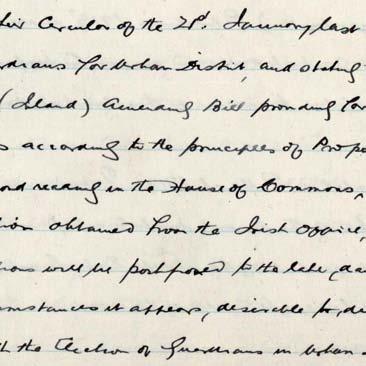 their Circular of the 2nd. January last
Guardians for Urban District, and stating
(Ireland) Amending Bill providing for
s according to the principles of Prope
ond reading in the House of Commons,
tion obtained from the Irish Office,
tions will be postponed to the late, da
cumstances it appears, desirable to, de
th the Election of Guardians in Urban